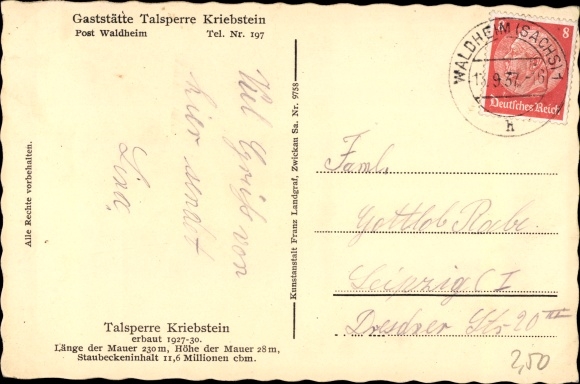 Gaststätte Talsperre Kriebstein
Post Waldheim Tel. Nr. 197
Viel Grüße von
hier sendet
Lina
Alle Rechte vorbehalten.
Talsperre Kriebstein
erbaut 1927-30.
Länge der Mauer 230 m, Höhe der Mauer 28 m,
Staubeckeninhalt 11,6 Millionen cbm.
Kunstanstalt Franz Landgraf, Zwickau Sa. Nr. 9758
WALDHEIM (SACHS) 1
13.9.37.
h
8
Deutsches Reich
Faml.
Gottlob Rabe.
Leipzig C I
Dresdner Str 20 III
2,50